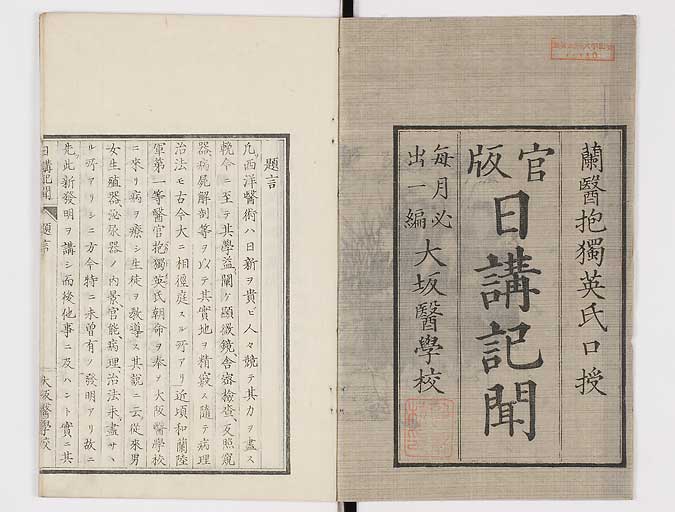 蘭醫抱獨英氏口授
官版
日講記聞
每月必
出一編
大坂醫學校
題言
凡西洋醫術ハ日新ヲ貴ビ人々競テ其力ヲ盡ス
輓今ニ至テ其學益闢ケ顯微鏡、舍密檢査及照窺
器病屍解剖等ヲ以テ其實地ヲ精覈ス隨テ病理
治法モ古今大ニ相徑庭スル所アリ近頃和蘭陸
軍第一等醫官抱獨英氏朝命ヲ奉ノ大阪醫學校
ニ來リ病ヲ療シ生徒ヲ敎導ス其說ニ云從來男
女生殖器泌尿器ノ内景官能病理治法未盡サヽ
ル所アリシニ方今特ニ未曾有ノ發明アリ故ニ
先此新發明ヲ講シ而後他事ニ及ハント實ニ其
日講記聞
題言
大坂醫學校